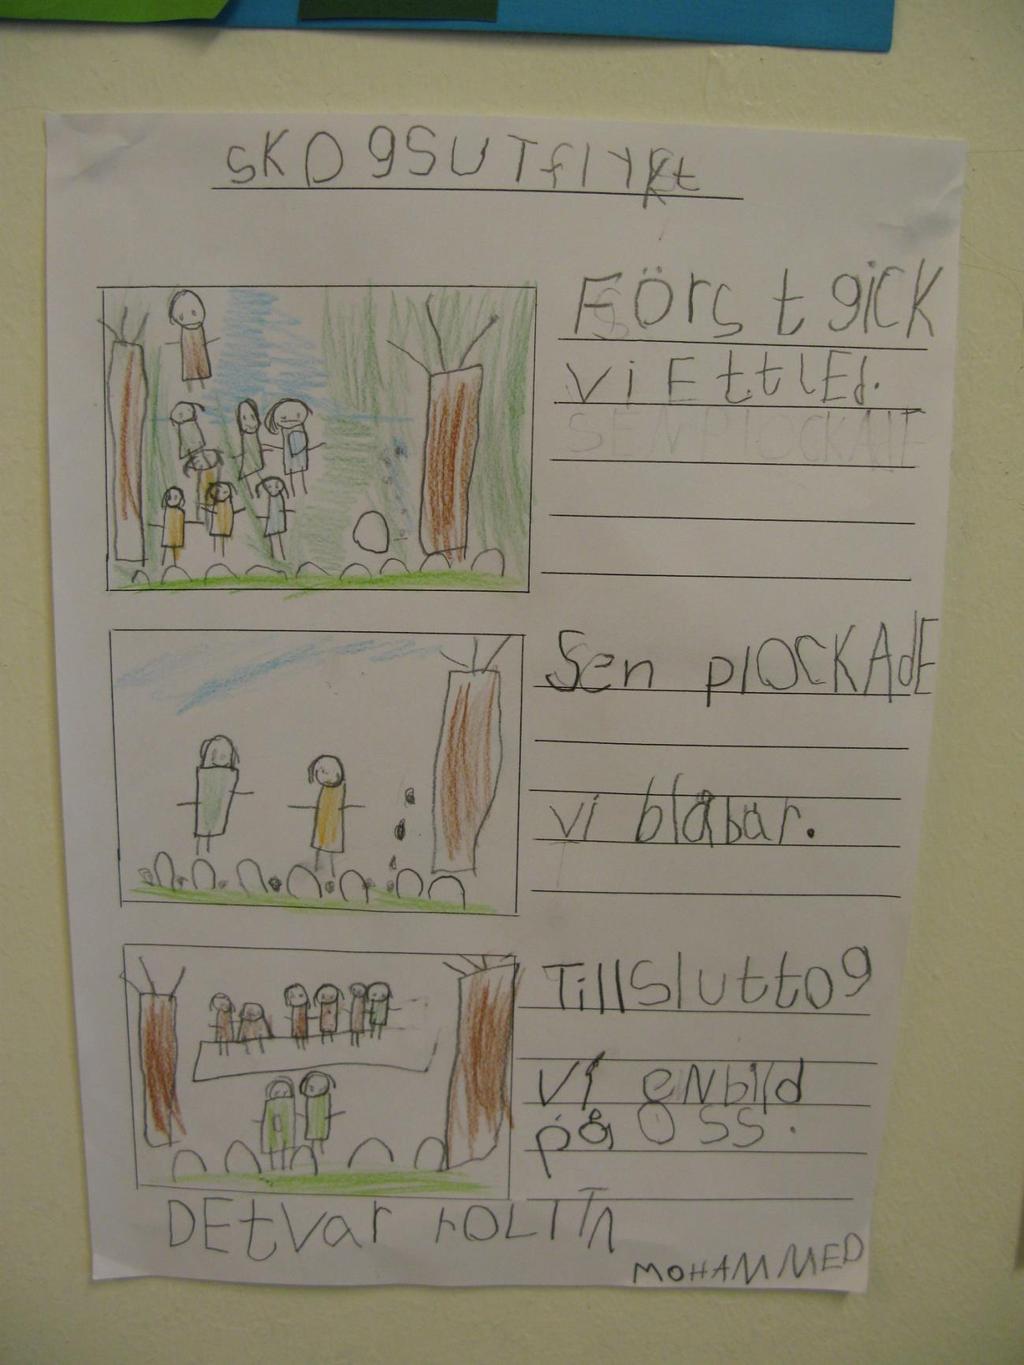 SKOgSUTflykt
FÖrst gick
vi EttlEd.
SENPlOCKADE
Sen plOCKAdE
vi blåbär.
Tillsluttog
Vi eNbild
på OSS.
DEtvar rOLITn
MOHAMMED